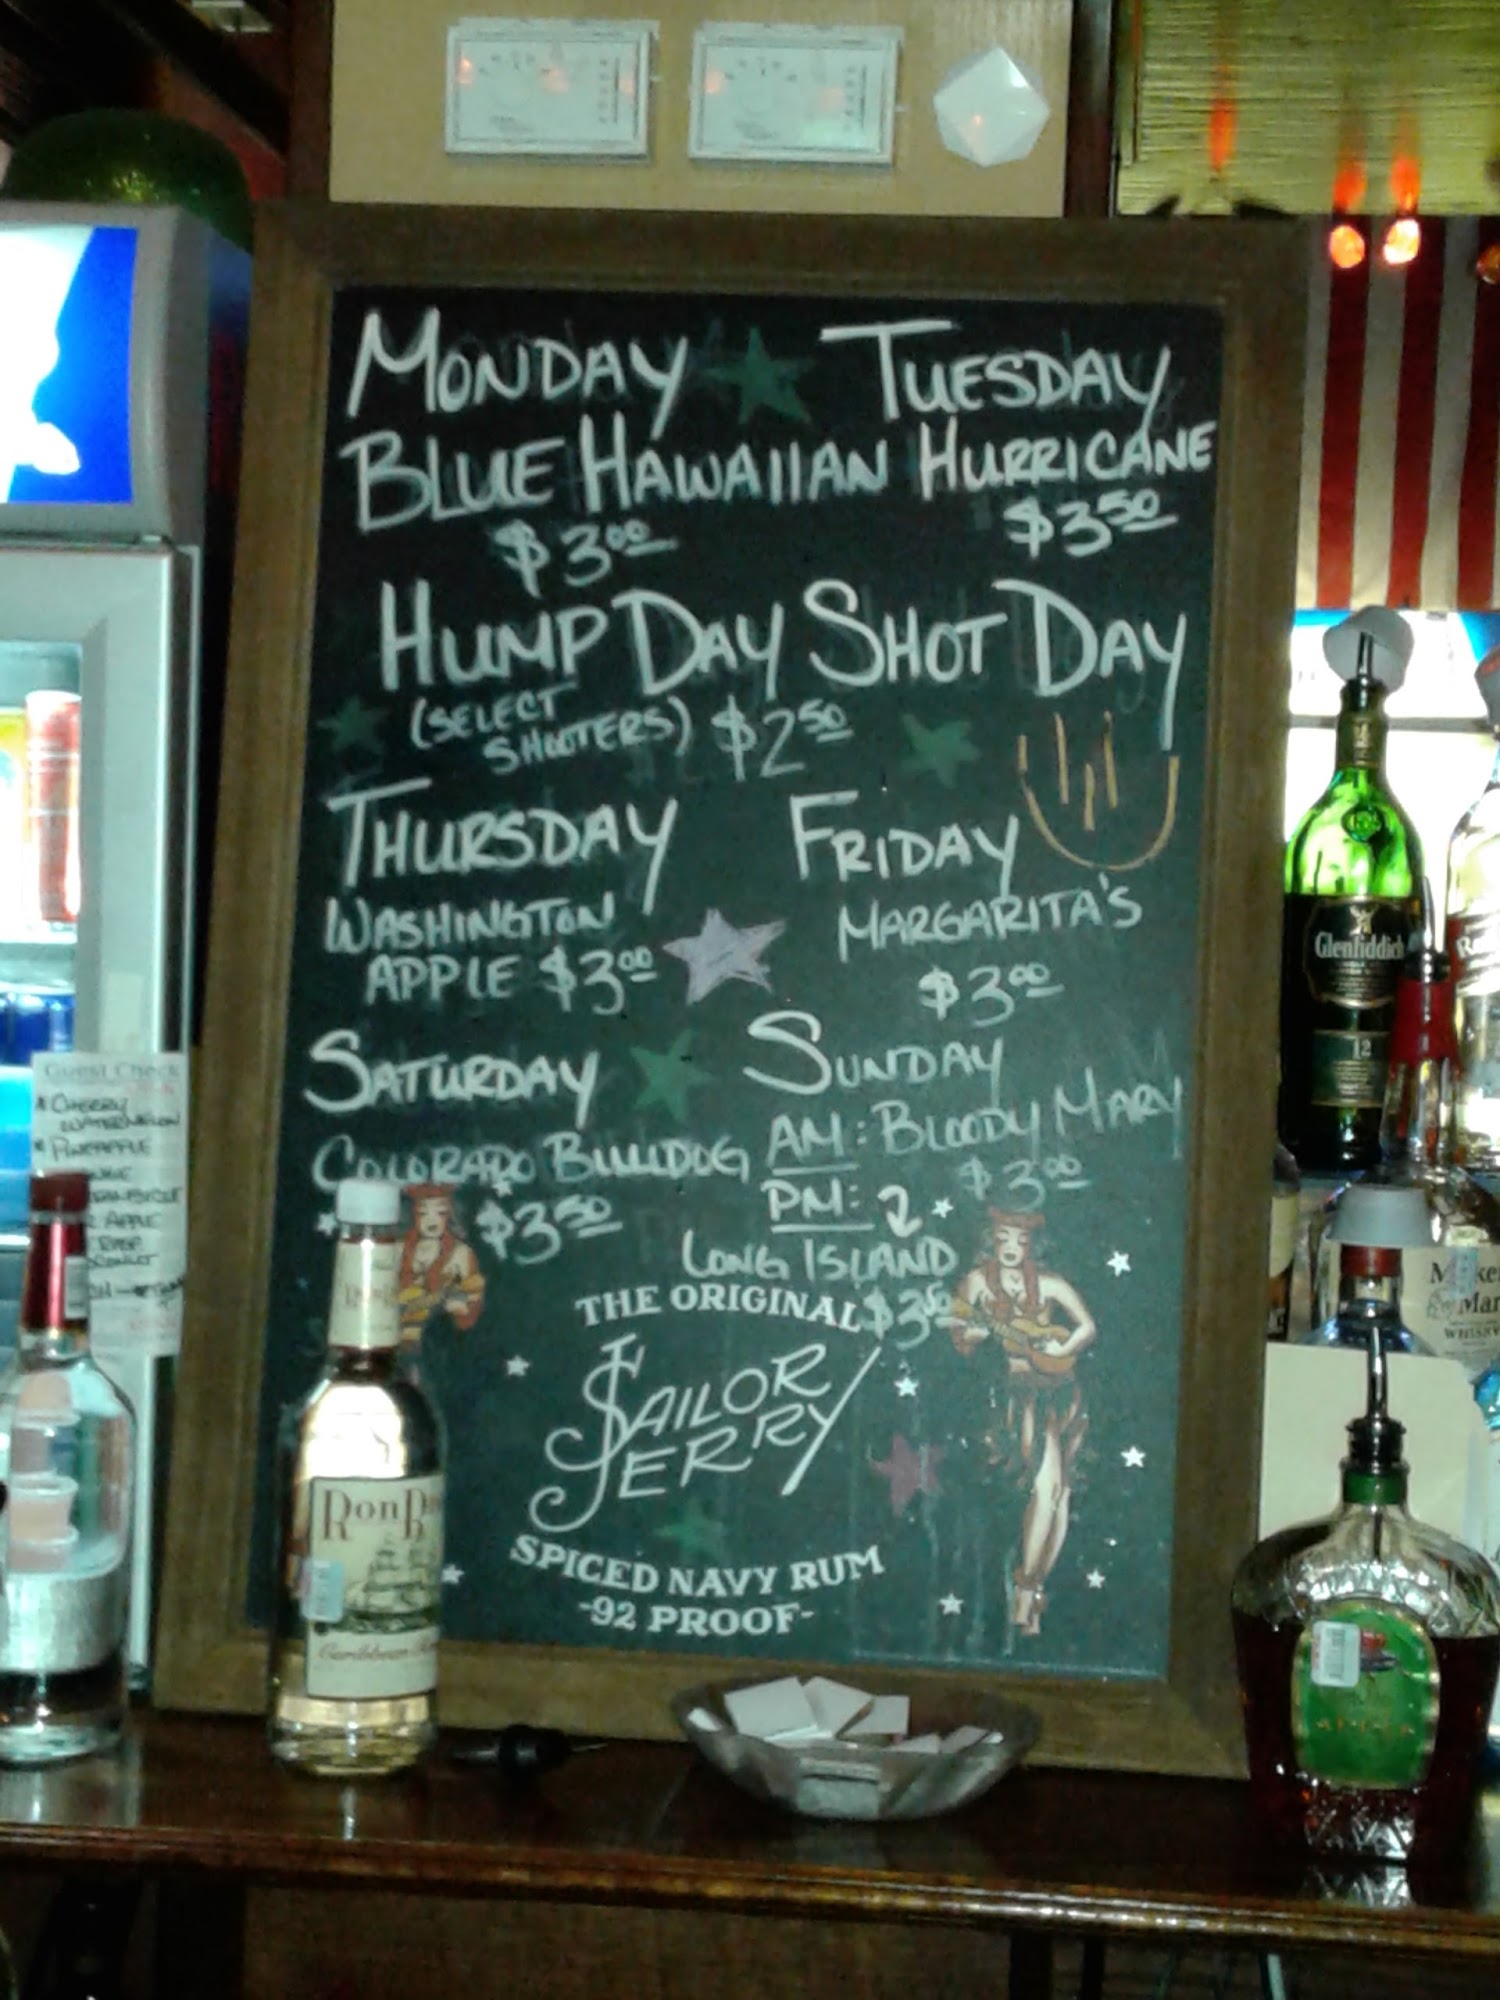 MONDAY
BLUE HAWAIIAN
$3.00
TUESDAY
HURRICANE
$3.50
HUMP DAY SHOT DAY
(SELECT
SHOOTERS) $2.50
THURSDAY
WASHINGTON
APPLE $3.00
FRIDAY
MARGARITA'S
$3.00
SATURDAY
COLORADO BULLDOG
$3.50
SUNDAY
AM: BLOODY MARY
$3.00
PM:
LONG ISLAND
$3.50
THE ORIGINAL
SAILOR
JERRY
SPICED NAVY RUM
-92 PROOF-
Guest Check
CHERRY
WATERMELON
PINEAPPLE
APPLE
Ron
Caribbean
Glenfiddich
12
WHISKY
APPLE